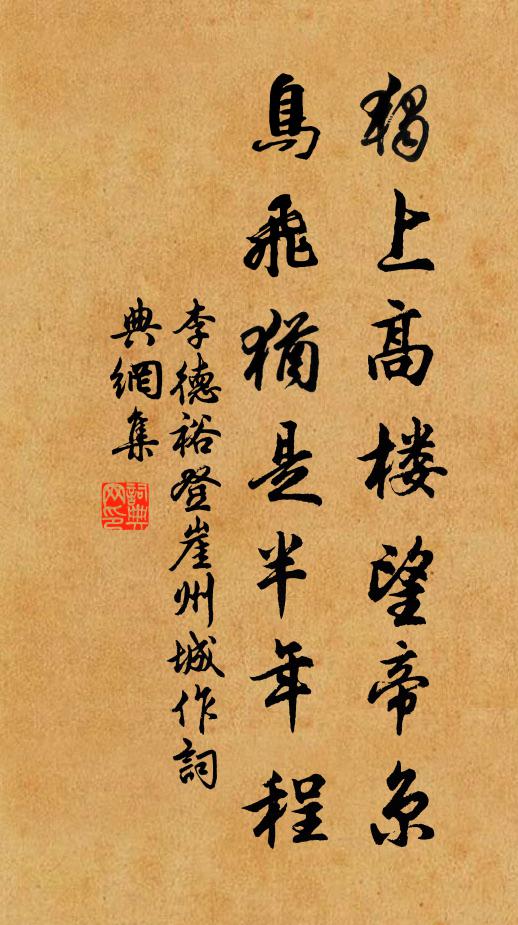 獨上高楼望帝京
鳥飛猶是半年程
李德裕登崖州城作詞
典網集
詞典
网印